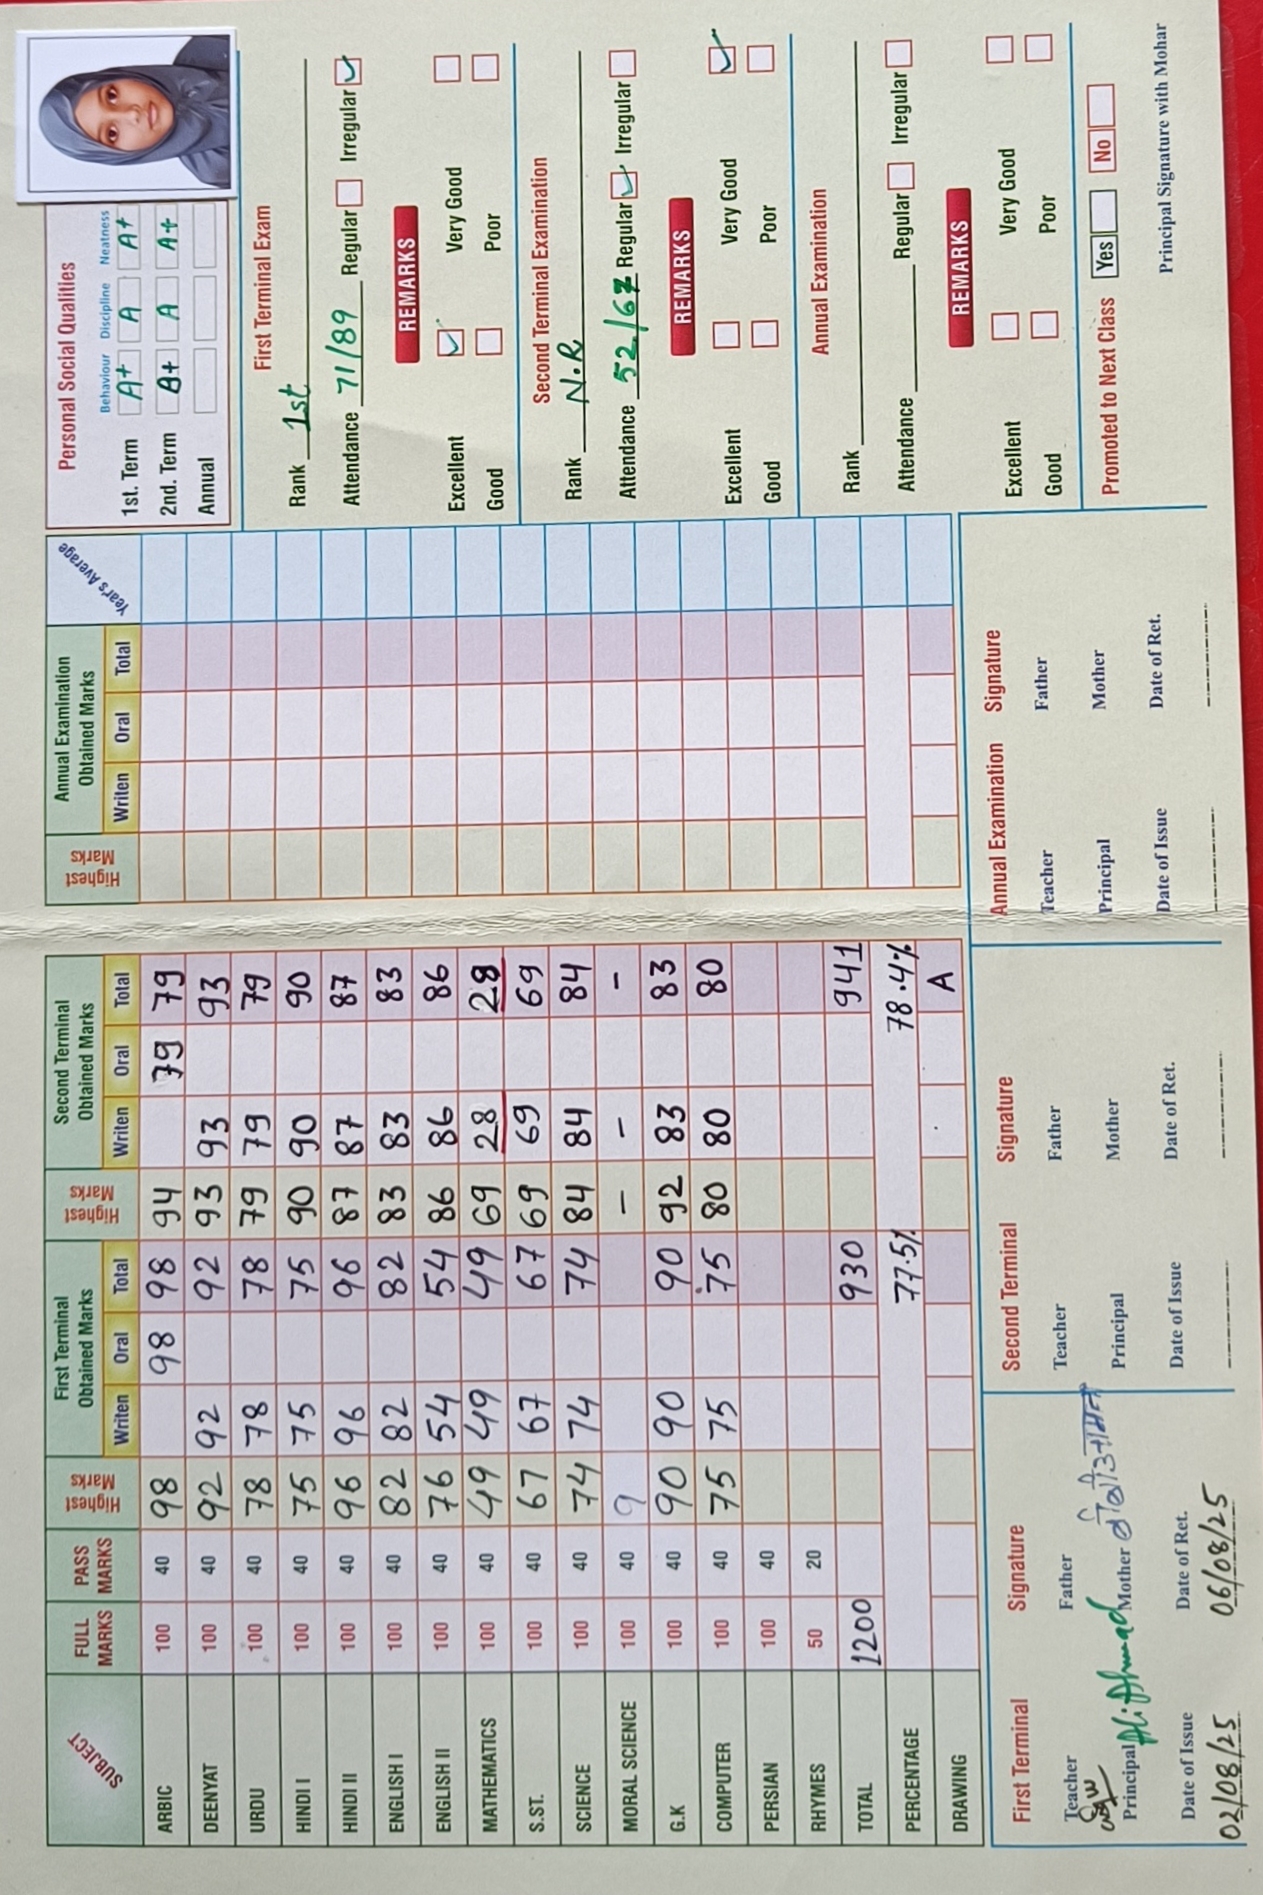 SUBJECT FULL MARKS PASS MARKS Highest Marks First Terminal Obtained Marks Writen Oral Total Highest Marks Second Terminal Obtained Marks Writen Oral Total Highest Marks Annual Examination Obtained Marks Writen Oral Total Year's Average
ARBIC 100 40 98 98 98 94 79 79
DEENYAT 100 40 92 92 92 93 93 93
URDU 100 40 78 78 78 79 79 79
HINDI I 100 40 75 75 75 90 90 90
HINDI II 100 40 96 96 96 87 87 87
ENGLISH I 100 40 82 82 82 83 83 83
ENGLISH II 100 40 76 54 54 86 86 86
MATHEMATICS 100 40 49 49 49 69 28 28
S.ST. 100 40 67 67 67 69 69 69
SCIENCE 100 40 74 74 74 84 84 84
MORAL SCIENCE 100 40 9 - - -
G.K 100 40 90 90 90 92 83 83
COMPUTER 100 40 75 75 75 80 80 80
PERSIAN 100 40
RHYMES 50 20
TOTAL 1200 930 941
PERCENTAGE 77.5% 78.4%
DRAWING A
First Terminal Signature
Teacher Father
Principal Ali Ahmad Mother
Date of Issue Date of Ret.
02/08/25 06/08/25
Second Terminal Signature
Teacher Father
Principal Mother
Date of Issue Date of Ret.
Annual Examination Signature
Teacher Father
Principal Mother
Date of Issue Date of Ret.
Personal Social Qualities
Behaviour Discipline Neatness
1st. Term A+ A A+
2nd. Term A+ A A+
Annual
First Terminal Exam
Rank 1st
Attendance 71/89 Regular Irregular
REMARKS
Excellent Very Good
Good Poor
Second Terminal Examination
Rank N.R
Attendance 52/67 Regular Irregular
REMARKS
Excellent Very Good
Good Poor
Annual Examination
Rank
Attendance Regular Irregular
REMARKS
Excellent Very Good
Good Poor
Promoted to Next Class Yes No
Principal Signature with Mohar